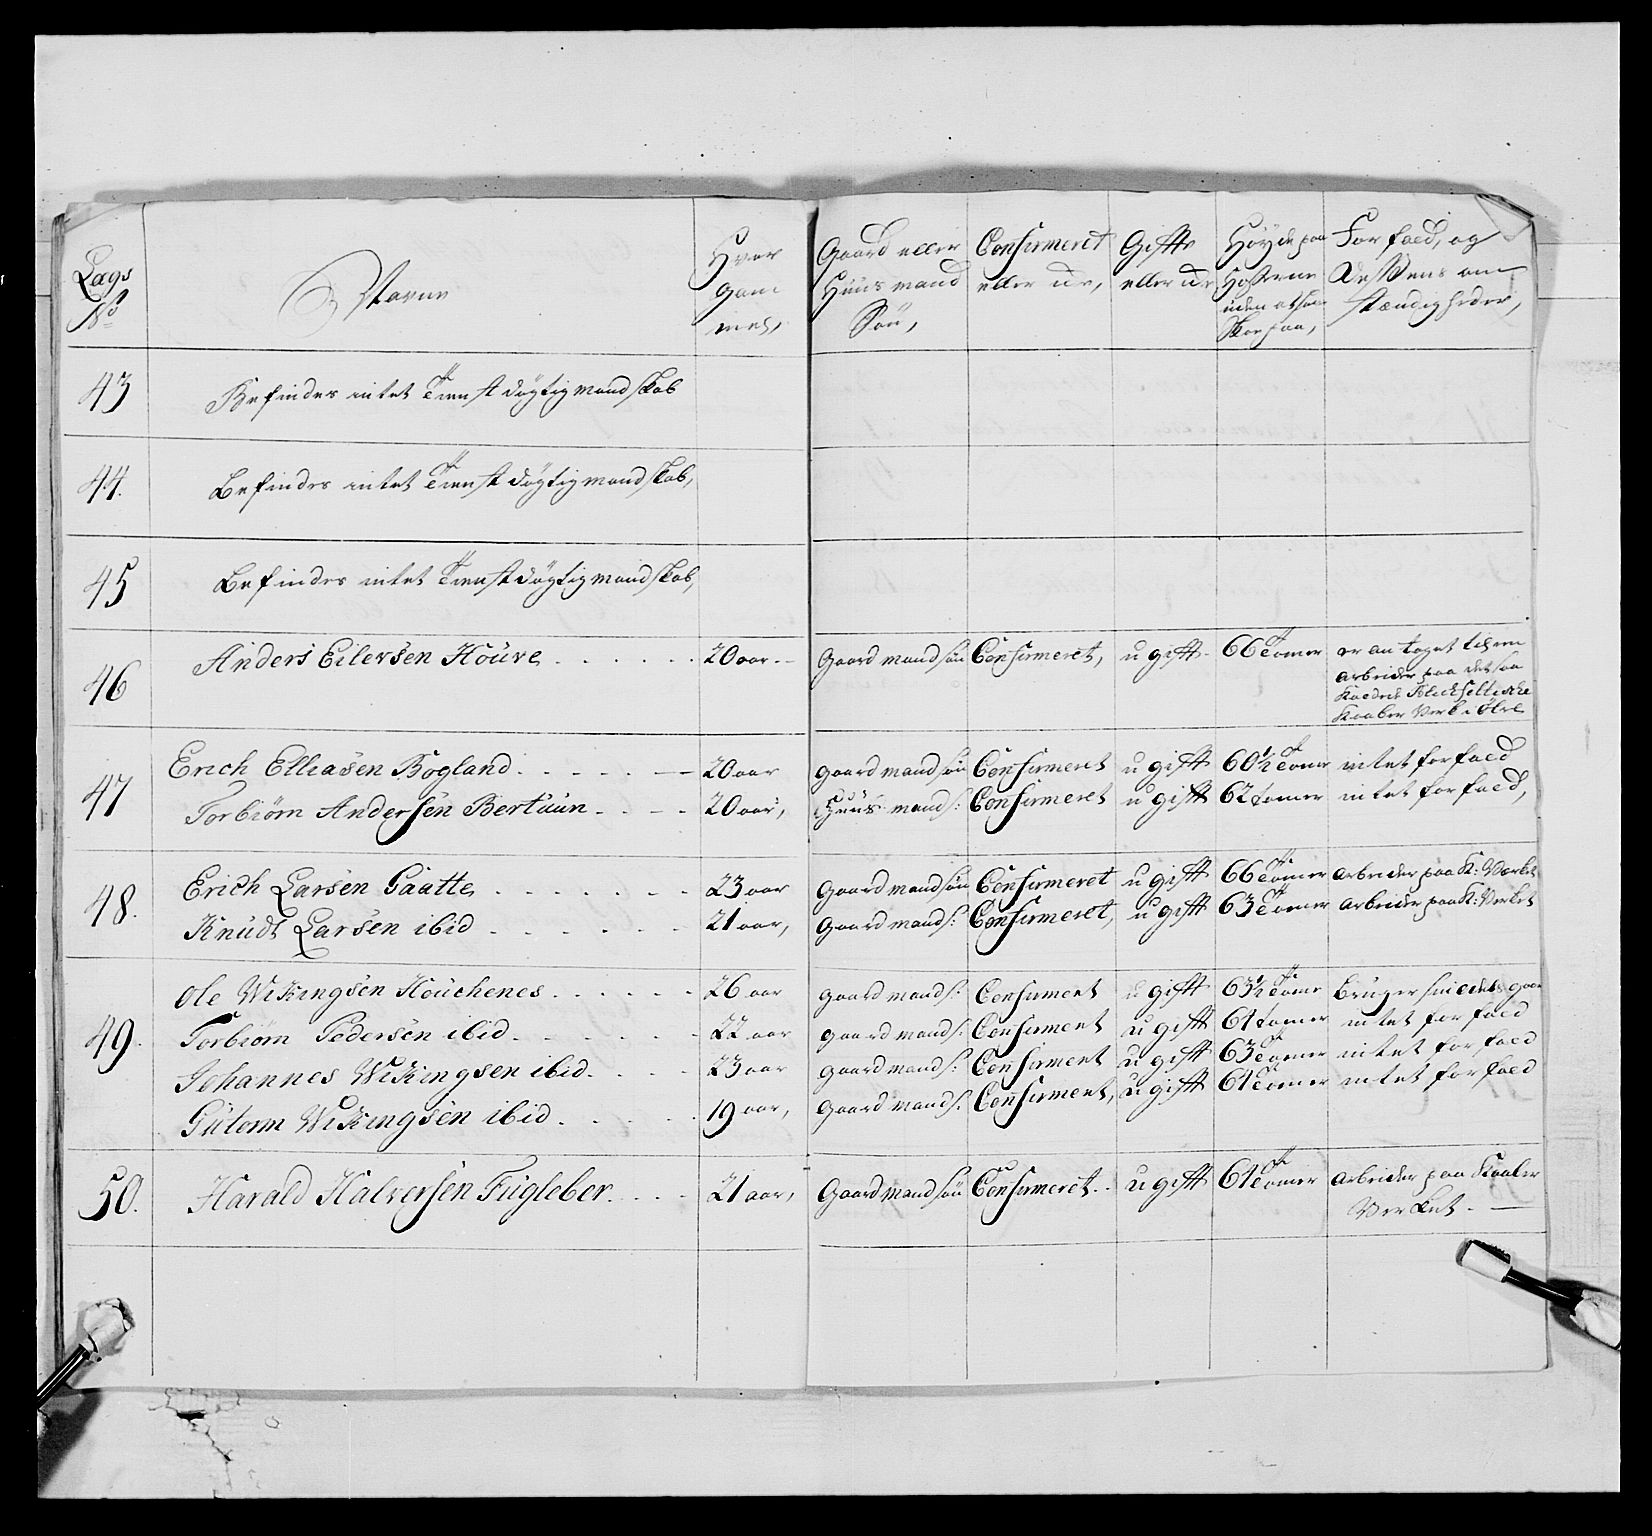 Lægs No | Navne | Hvor gammel, | Gaard eller Huusmand Søn, | Confirmeret eller ei, | Gifte eller ei | Høyde paa Hosserne uden at have Skoe paa, | Forfald, og dessens omstændigheder,
43 Befindes intet Tienstdÿgtig mandskab
44. Befindes intet Tienstdÿgtig mandskab,
45 Befindes intet Tienstdÿgtig mandskab,
46 Anders Eilersen Houve 20 aar Gaardmandsøn Confirmeret, ugift 66 Tomer er antaget til en
arbeider paa det saa
Kaaber Verk i Ølve
47 Erich Elliasen Bogland 20 aar gaardmandsøn Confirmeret ugift 60½ Tomer intet forfald
Torbiørn Andersen Bertuun 20 aar, Huusmands: Confirmeret ugift 62 tomer intet forfald,
48. Erich Larsen Gaatte 23 aar Gaardmandsøn Confirmeret ugift 66 Tomer arbeider paa K: Værket
Knudt Larsen ibid 21 aar, Gaardmands: Confirmeret, ugift 63 Tomer arbeider paa K: Verket
49. Ole Wikingsen Houchenes 26 aar gaardmands: Confirment ugift 63½ Tome bruger
Torbiørn Pedersen ibid 22 aar gaardmands: Confirment ugift 61 tomer intet forfald
Johannes Wikingsen ibid 23 aar gaardmands: Confirment ugift 63 Tomer intet forfald
Gutorm Wikingsen ibid 19 aar, Gaardmands: Confirment, ugift 61 Tomer intet forfald
50. Harald Halversen Fugleber 21 aar, Gaardmandsøn Confirmeret ugift 61 Tomer arbeider paa Kaaber
Verket